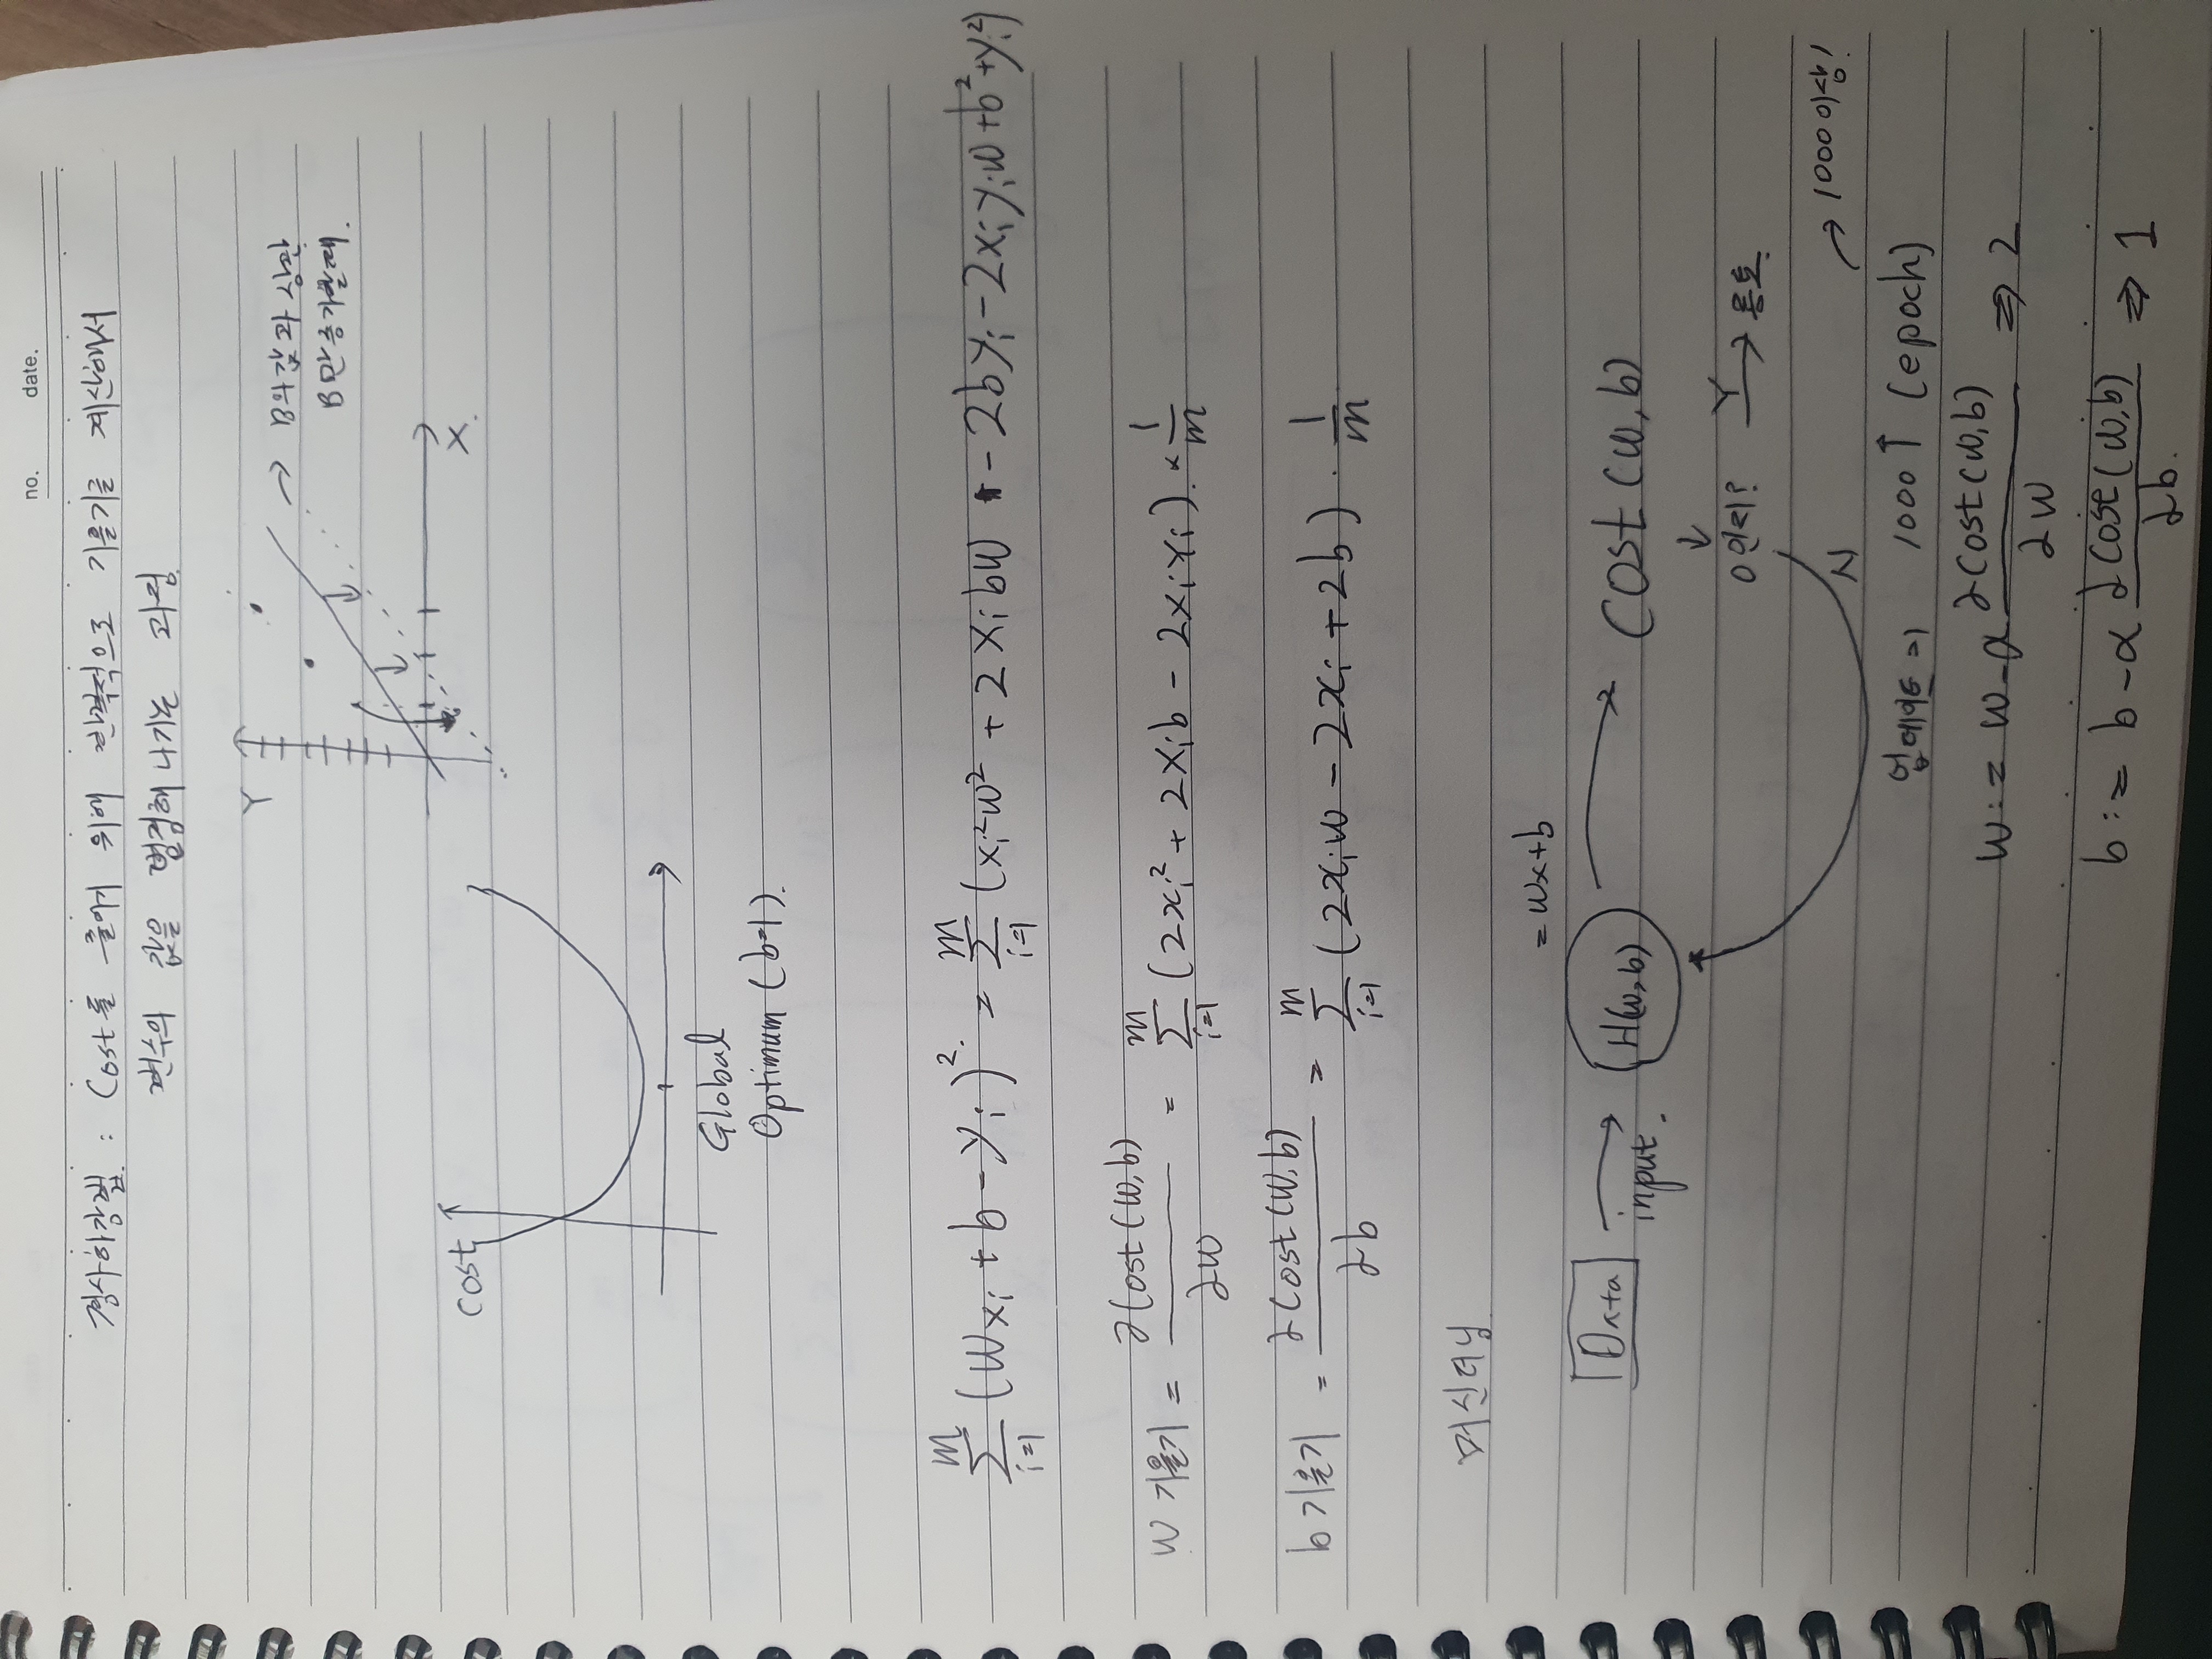 no. date.
경사하강법 : Cost를 줄이기 위해 반복적으로 기울기를 계산해서
변수의 값을 변경해 나가는 과정
Y
→ B의 값과 상관
B만 증가할때.
X.
Cost
Global
Optimum (b=1).
\sum_{i=1}^{m} (Wx_i + b - y_i)^2 = \sum_{i=1}^{m} (x_i^2w^2 + 2x_ibw - 2by_i - 2x_iy_iw + b^2 + y_i^2)
W 기울기 = \frac{∂Cost(W,b)}{∂w} = \sum_{i=1}^{m} (2x_i^2 + 2x_ib - 2x_iy_i). × \frac{1}{m}
b 기울기 = \frac{∂Cost(W,b)}{∂b} = \sum_{i=1}^{m} (2x_iw - 2x_i + 2b) · \frac{1}{m}
머신러닝
= wx+b
Data → input. H(w,b) → Cost (w,b)
↓
0인지? Y →
N
→ 1000 이상!
업데이트 => 1000↑ (epoch)
w := w - α \frac{∂Cost(w,b)}{∂w} ⇒ 2
b := b - α \frac{∂Cose(w,b)}{∂b.} ⇒ 1